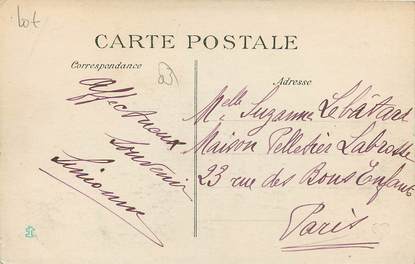 Lot
CARTE POSTALE
Correspondance
Adresse
Affectueux
Souvenir
Simonne
Melle Suzanne Lebâtard
Maison Pelletier Labrosse
23 rue des Bons Enfants
Paris